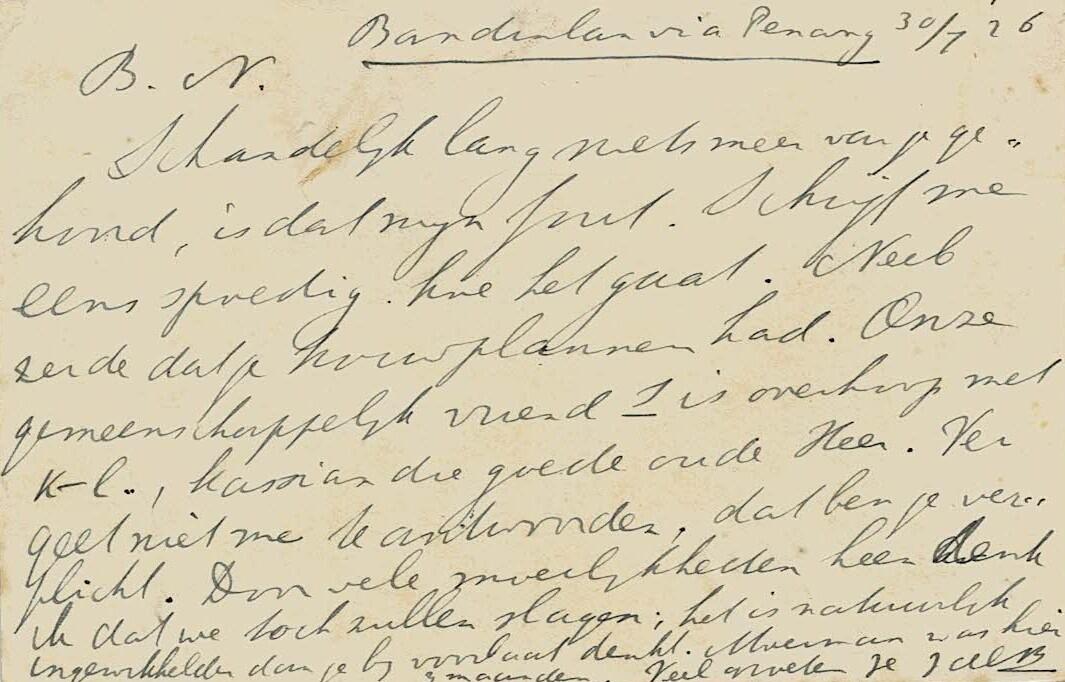 Bandenlan via Penang 30/7 '26
B. N.
Schandelijk lang niets meer van je ge-
hoord, is dat mijn fout. Schrijf me
eens spoedig hoe het gaat. Neeb
zeide dat je trouwplannen had. Onze
gemeenschappelijk vriend S is overhoop met
K-l., kassian die goede oude Heer. Ver
geet niet me te antwoorden, dat ben je ver-
plicht. Door vele moeilijkheden heen denk
ik dat we toch zullen slagen; het is natuurlijk
ingewikkelder dan je bij voorbaat denkt. Moerman was hier
3 maanden. Veel groeten je